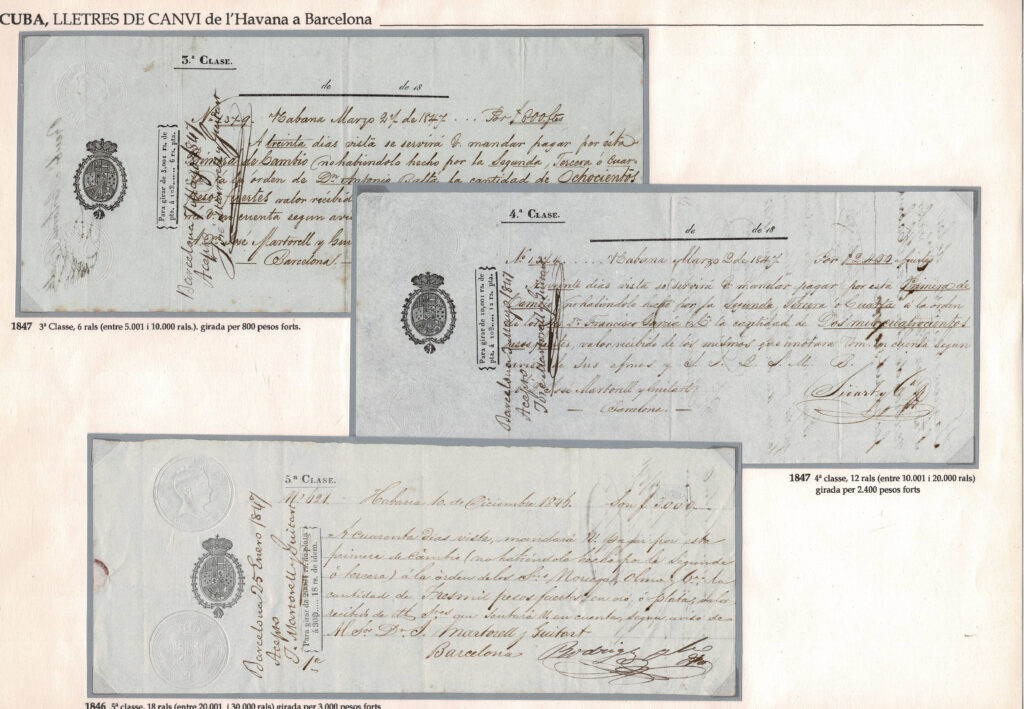 CUBA, LLETRES DE CANVI de l'Havana a Barcelona
3.ª CLASE.
de de 18
Nº 1379. Habana Marzo 27 de 1847 ... Por $ 800 ftes
A treinta dias vista se servirá V. mandar pagar por esta
Primera de Cambio (no habiéndolo hecho por la Segunda, Tercera ó Cuar-
orden de Dn. Antonio Baltá la cantidad de Ochocientos
pesos fuertes valor recibid
en cuenta segun avi
José Martorell y Gui
Barcelona.
Para girar de 5,001 rs. de
pta. á 10@..... 6 rs. pta.
Barcelona 7 Mayo 1847
Acepto
José Martorell y Guitart
1847 3ª Classe, 6 rals (entre 5.001 i 10.000 rals.). girada per 800 pesos forts.
4.ª CLASE.
de de 18
Nº 1374. .... Habana Marzo 2 de 1847. Por $ 2.400
veinte dias vista se servirá V. mandar pagar por esta Primera de
Cambio no habiéndolo hecho por la Segunda, Tercera ó Cuarta á la orden
Francisco García la cantidad de Dos mil cuatrocientos
pesos fuertes, valor recibido de los mismos que anotara Vm. en cuenta segun
S. S. Q. S. M. B.
Jose Martorell y Guitart
Barcelona
Sicart y Ca
Para girar de 10,001 rs. de
pta. á 20@..... 12 rs. pta.
Barcelona 3 Mayo 1847
Acepto
José Martorell y Guitart
1847 4ª classe, 12 rals (entre 10.001 i 20.000 rals)
girada per 2.400 pesos forts
5.ª CLASE.
Nº 621. Habana 10 de Diciembre 1846. Son $ 3.000
A Cuarenta dias vista, mandará V. pagar por esta
primera de Cambio (no habiendolo hecho por la Segunda
ó tercera) á la órden de los Sres. Noriega, Olmo y Ca. la
cantidad de Tres mil pesos fuertes en oro ó plata, valor
recibido de dhos Sres que sentará V. en cuenta, segun aviso de
A l Sor. Dn. J. Martorell y Guitart
Barcelona
Rodrigz
Barcelona 25 Enero 1847
Acepto
J. Martorell y Guitart
á 30@..... 18 rs. de idem.
1846 5ª classe, 18 rals (entre 20.001 i 30.000 rals) girada per 3.000 pesos forts